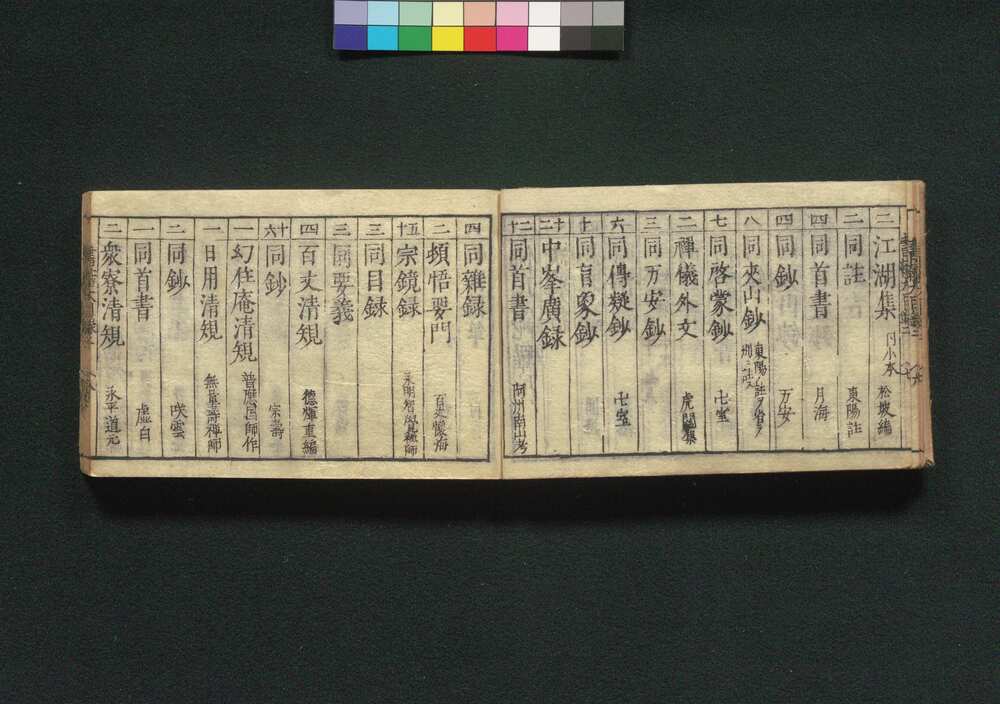 二 江湖集 同小本 松坡編
二 同註 東陽註
四 同首書 月海
四 同鈔 万安
八 同夾山鈔
七 同啓蒙鈔
二 禅儀外文 虎関集
三 同万安鈔
六 同傳疑鈔
十 同盲象鈔
二十 中峯廣録
二十 同首書 阿州南山考
四 同雜録
二 頓悟要門 百丈懐海
五十 宗鏡録 永明智覚禅師
三 同目録
三 同要義
四 百丈清規 德輝重編
六十 同鈔 宗壽
一 幻住庵清規 普應国師作
一 日用清規 無量壽禅師
二 同鈔 咲雲
一 同首書 虚白
二 衆寮清規 永平道元